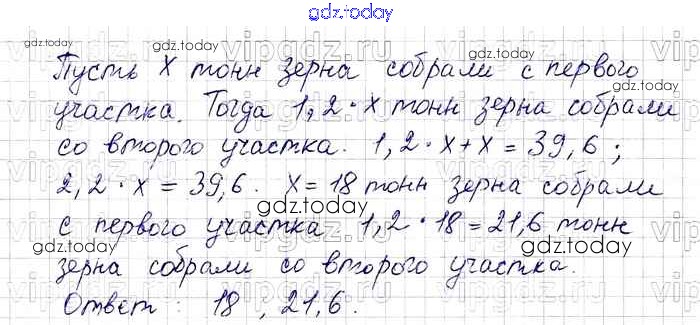 gdz.today
Пусть х тонн зерна собрали с первого
участка. Тогда 1,2 · х тонн зерна собрали
со второго участка. 1,2 · х + х = 39,6 ;
2,2 · х = 39,6 . х = 18 тонн зерна собрали
с первого участка 1,2 · 18 = 21,6 тонн
зерна собрали со второго участка.
Ответ : 18 , 21,6 .
gdz.today
gdz.today
gdz.today
gdz.today
gdz.today
gdz.today
gdz.today
vipgdz.ru